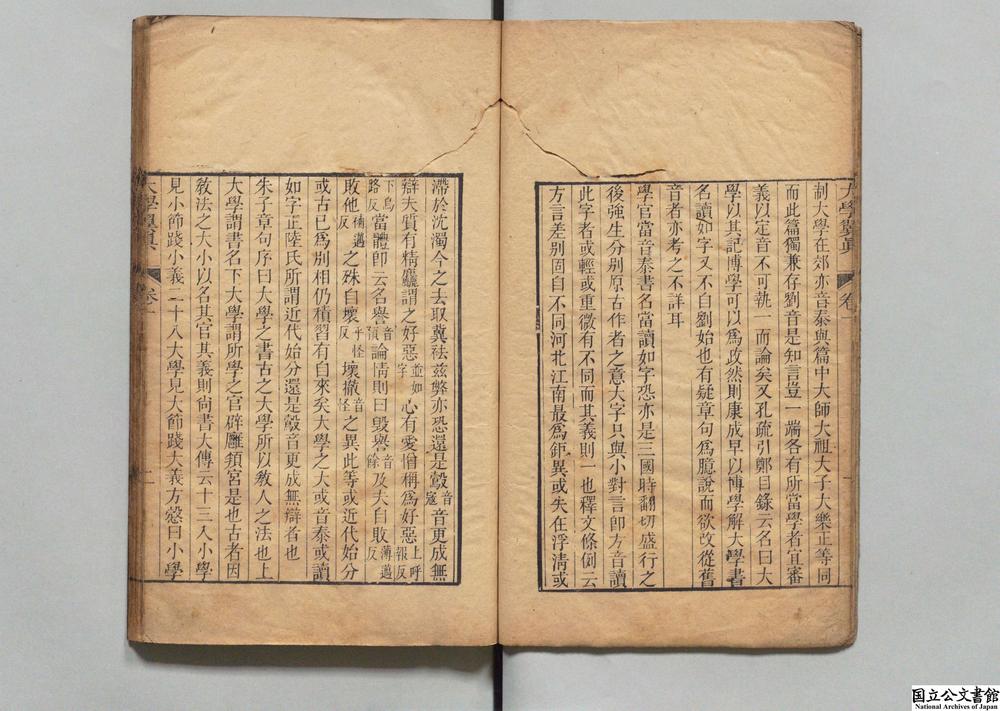 大學翼真 卷一
制大學在郊亦音泰與篇中大師大祖大子大樂正等同
而此篇獨兼存劉音是知言豈一端各有所當學者宜審
義以定音不可執一而論矣又孔疏引鄭目錄云名曰大
學以其記博學可以為政然則康成早以博學解大學書
名讀如字又不自劉始也有疑章句為臆說而欲改從舊
音者亦考之不詳耳
學官當音泰書名當讀如字恐亦是三國時翻切盛行之
後強生分別原古作者之意大字只與小對言即方音讀
此字者或輕或重微有不同而其義則一也釋文條例云
方言差別固自不同河北江南最為鉅異或失在浮清或
滯於沈濁今之去取冀祛茲弊亦恐還是鷇音寇音更成無
辯夫質有精麤謂之好惡並如字心有愛憎稱為好惡上呼報反
下烏路反當體即云名譽音預論情則曰毀譽音餘及夫自敗蒲邁反
敗他補邁反之殊自壞乎怪反壞撤音怪之異此等或近代始分
或古已為別相仍積習有自來矣大學之大或音泰或讀
如字正陸氏所謂近代始分還是鷇音更成無辯者也
朱子章句序曰大學之書古之大學所以教人之法也上
大學謂書名下大學謂所學之官辟廱頖宮是也古者因
教法之大小以名其官其義則尚書大傳云十三入小學
見小節踐小義二十八大學見大節踐大義方愨曰小學
大學翼真 卷一 二
国立公文書館
National Archives of Japan